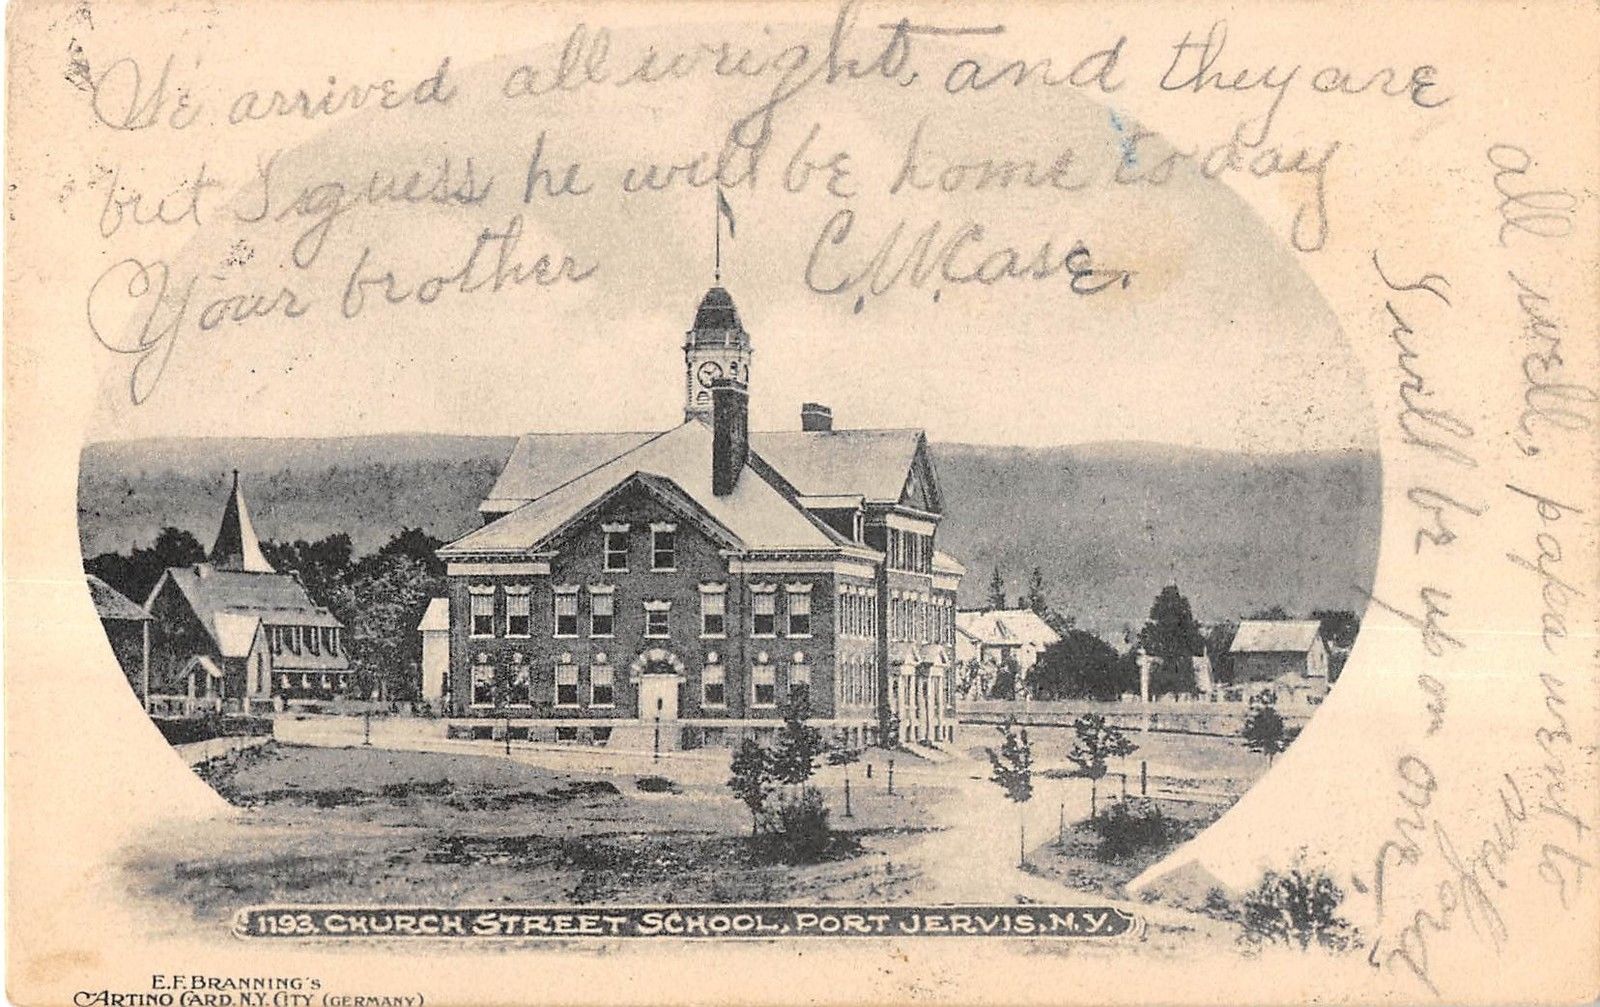 We arrived all wright, and they are
all well, papa went to
Milford
but I guess he will be home today
I will be up on ore
Your brother C.W. Case.
1193. CHURCH STREET SCHOOL, PORT JERVIS, N.Y.
E.F. BRANNING'S
ARTINO CARD. N.Y. CITY (GERMANY)